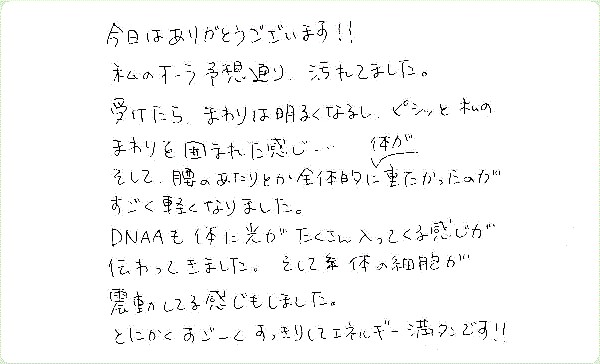 今日はありがとうございます!!
私のオーラ予想通り、汚れてました。
受けたら、まわりは明るくなるし、ビシッと私の
まわりを囲まれた感じ…
そして、腰のあたりとか全体的に体が重たかったのが
すごく軽くなりました。
DNAAも体に光がたくさん入ってくる感じが
伝わってきました。そして体の細胞が
震動してる感じもしました。
とにかくすご〜くすっきりしてエネルギー満タンです!!